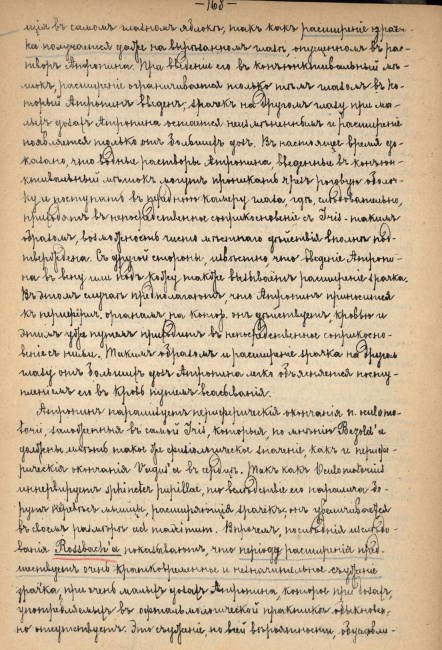 — 168 —
ція въ самомъ глазномъ яблокѣ, такъ какъ расширеніе зрач-
ка получается даже на вырѣзанномъ глазѣ, опущенномъ въ рас-
творъ Атропина. При введеніи его въ конъюнктивальный мѣ-
шокъ, расширеніе ограничивается только тѣмъ глазомъ въ ко-
торый Атропинъ введенъ, зрачекъ на другомъ глазу при ма-
лыхъ дозахъ Атропина остается неизмѣненнымъ и расширеніе
появляется только отъ большихъ дозъ. Въ настоящее время до-
казано, что водные растворы Атропина введенные въ конъюн-
ктивальный мѣшокъ могутъ проникать чрезъ роговую оболоч-
ку и поступать въ переднюю камеру глаза, гдѣ, слѣдовательно,
приходятъ въ непосредственное соприкосновеніе съ Iris. Такимъ
образомъ, возможность чисто мѣстнаго дѣйствія вполнѣ под-
тверждена. Съ другой стороны, извѣстно, что введеніе Атропи-
на въ вену или подъ кожу также вызываетъ расширеніе зрачка.
Въ этомъ случаѣ предполагаютъ, что Атропинъ приносится
къ периферич. органамъ, на котор. онъ дѣйствуетъ, кровью и
этимъ уже путемъ приходитъ въ непосредственное соприкосно-
веніе съ ними. Такимъ образомъ и расширеніе зрачка на другомъ
глазу отъ большихъ дозъ Атропина легко объясняется посту-
пленіемъ его въ кровь путемъ всасыванія.
Атропинъ парализуетъ периферическія окончанія n. oculomo-
torii, заложенныя въ самой Iris, которыя, по мнѣнію Bezold'a
должны имѣть такое же физіологическое значеніе, какъ и перифе-
рическія окончанія Vagus'a въ сердцѣ. Такъ какъ Oculomotorius
иннервируетъ sphincter pupillae, то вслѣдствіе его паралича бе-
рутъ перевѣсъ мышцы, расширяющія зрачекъ; онъ увеличивается
въ своемъ размѣрѣ ad maximum. Впрочемъ, послѣднія изслѣдо-
ванія Rossbach'a показываютъ, что періоду расширенія пред-
шествуетъ очень кратковременное и незначительное съуженіе
зрачка, при очень малыхъ дозахъ Атропина, которое при дозахъ,
употребляемыхъ въ офтальмологической практикѣ обыкновен-
но отсутствуетъ. Это съуженіе, по всей вѣроятности, обусловли-